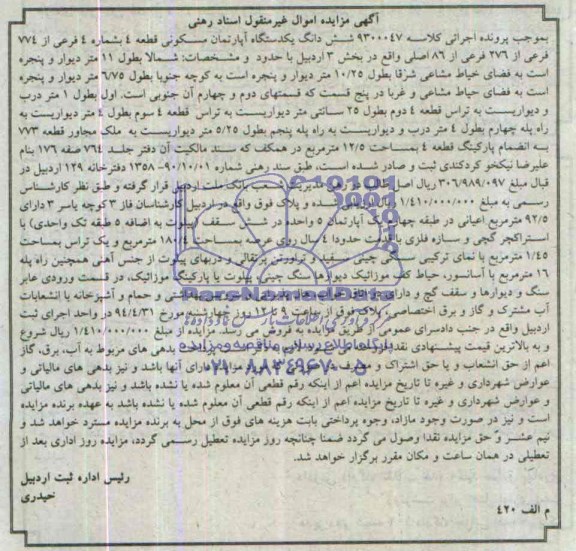 آگهی مزایده اموال غیرمنقول اسناد رهنی
بموجب پرونده اجرائی کلاسه ۹۳۰۰۰۴۷ شش دانگ یکدستگاه آپارتمان مسکونی قطعه ۴ بشماره ۴ فرعی از ۷۷۴
فرعی از ۲۷۶ فرعی از ۸۶ اصلی واقع در بخش ۳ اردبیل با حدود و مشخصات: شمالا بطول ۱۱ متر دیوار و پنجره
است به فضای حیاط مشاعی شرقا بطول ۱۰/۲۵ متر دیوار و پنجره است به کوچه جنوبا بطول ۶/۷۵ متر دیوار و پنجره
است به فضای حیاط مشاعی و غربا در پنج قسمت که قسمتهای دوم و چهارم آن جنوبی است. اول بطول ۱ متر درب
و دیواریست به تراس قطعه ۴ دوم بطول ۲۵ سانتی متر دیواریست به تراس قطعه ۴ سوم بطول ۴ متر دیواریست به
راه پله چهارم بطول ۴ متر درب و دیواریست به راه پله پنجم بطول ۵/۲۵ متر دیواریست به ملک مجاور قطعه ۷۷۳
به انضمام پارکینگ قطعه ۴ بمساحت ۱۲/۵ مترمربع در همکف که سند مالکیت آن دفتر جلد ۷۶۴ صفحه ۱۷۶ بنام
علیرضا نیکخو کردکندی ثبت و صادر شده است، طبق سند رهنی شماره ۹۰/۱۰/۰۱-۱۳۵۸ دفترخانه ۱۲۹ اردبیل در
قبال مبلغ ۳۰۶/۹۸۹/۰۹۷ ریال اصل طلب در رهن مدیریت شعب بانک ملت اردبیل قرار گرفته و طبق نظر کارشناس
رسمی به مبلغ ۱/۴۱۰/۰۰۰/۰۰۰ ریال شده و پلاک فوق واقع در اردبیل کارشناسان فاز ۳ کوچه یاسر ۳ دارای
۹۲/۵ مترمربع اعیانی در طبقه آپارتمان ۵ واحد در شش سقف (پیلوت به اضافه ۵ طبقه تک واحدی) با
استراکچر گچی و سازه فلزی با قدمت حدودا ۴ سال روی عرصه بمساحت ۱۸۰/۴ مترمربع و یک تراس بمساحت
۱/۴۵ مترمربع با نمای ترکیبی سنگ چینی سفید و تراورتن پرتقالی و دربهای پیلوت از جنس آهنی همچنین راه پله
۱۶ مترمربع با آسانسور، حیاط کف موزائیک دیوارها سنگ چینی، پیلوت یا پارکینگ موزائیک، در قسمت ورودی عابر
سنگ و دیوارها و سقف گچ و دارای و حمام و آشپزخانه با انشعابات
آب مشترک و گاز و برق اختصاصی، پلاک فوق از ساعت ۹ تا ۱۲ روز چهارشنبه مورخ ۹۴/۴/۳۱ در واحد اجرای ثبت
اردبیل واقع در جنب دادسرای عمومی از طریق مزایده به فروش می رسد. مزایده از مبلغ ۱/۴۱۰/۰۰۰/۰۰۰ ریال شروع
و به بالاترین قیمت پیشنهادی نقدا فروخته می شود پرداخت بدهی های مربوط به آب، برق، گاز
اعم از حق انشعاب و یا حق اشتراک و مصرف دارای آنها باشد و نیز بدهی های مالیاتی و
عوارض شهرداری و غیره تا تاریخ مزایده اعم از اینکه رقم قطعی آن معلوم شده یا نشده باشد و نیز بدهی های مالیاتی
و عوارض شهرداری و غیره تا تاریخ مزایده اعم از اینکه رقم قطعی آن معلوم شده یا نشده باشد به عهده برنده مزایده
است و نیز در صورت وجود مازاد، وجوه پرداختی بابت هزینه های فوق از محل به برنده مزایده مسترد خواهد شد و
نیم عشر و حق مزایده نقدا وصول می گردد ضمنا چنانچه روز مزایده تعطیل رسمی گردد، مزایده روز اداری بعد از
تعطیلی در همان ساعت و مکان مقرر برگزار خواهد شد.
رئیس اداره ثبت اردبیل
حیدری
م الف ۴۲۰
ParsNamadData
پایگاه اطلاع رسانی مناقصه و مزایده
۰۲۱-۸۸۳۴۹۶۷۰-۵